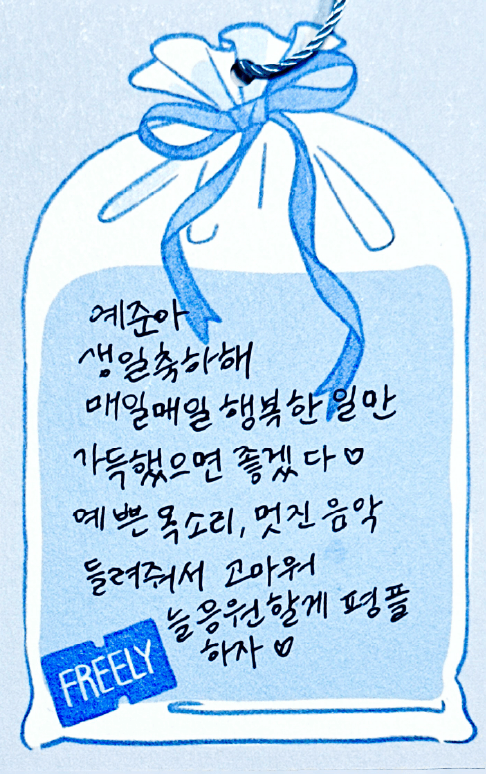 예준아
생일축하해
매일매일 행복한 일만
가득했으면 좋겠다♡
예쁜 목소리, 멋진 음악
들려줘서 고마워
늘 응원할게 평플
하자♡
FREELY